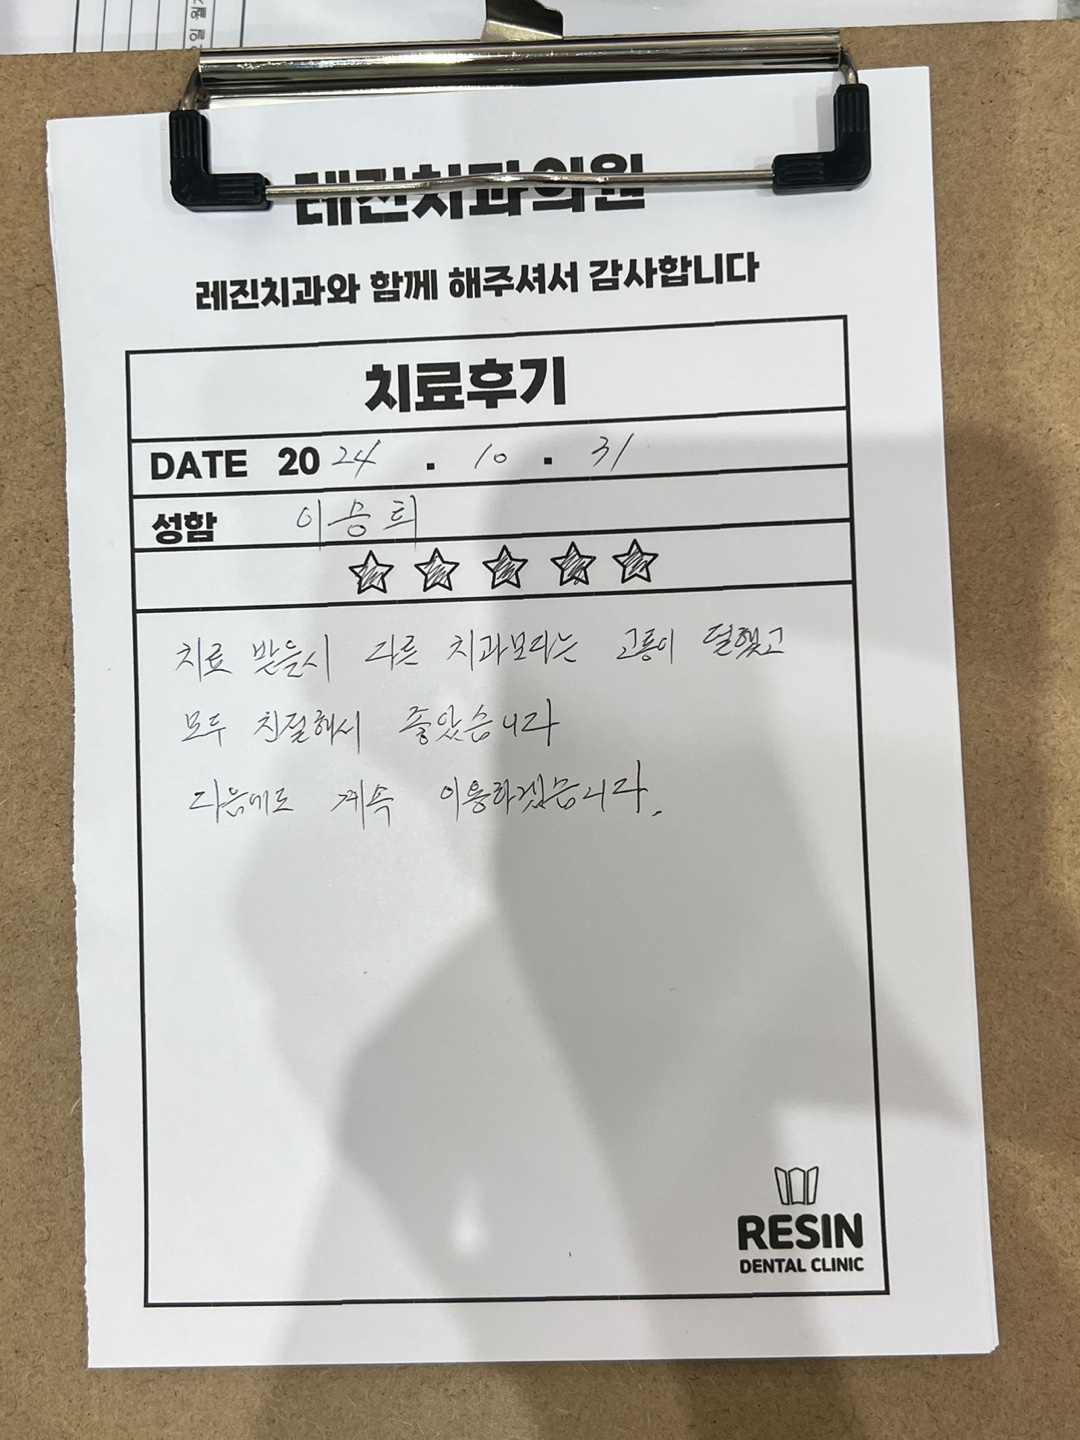 레진치과의원
레진치과와 함께 해주셔서 감사합니다
치료후기
DATE 2024 . 10 . 31
성함 이승희
치료 받을시 다른 치과보다는 고통이 덜했고
모두 친절해서 좋았습니다
다음에도 계속 이용하겠습니다.
RESIN
DENTAL CLINIC